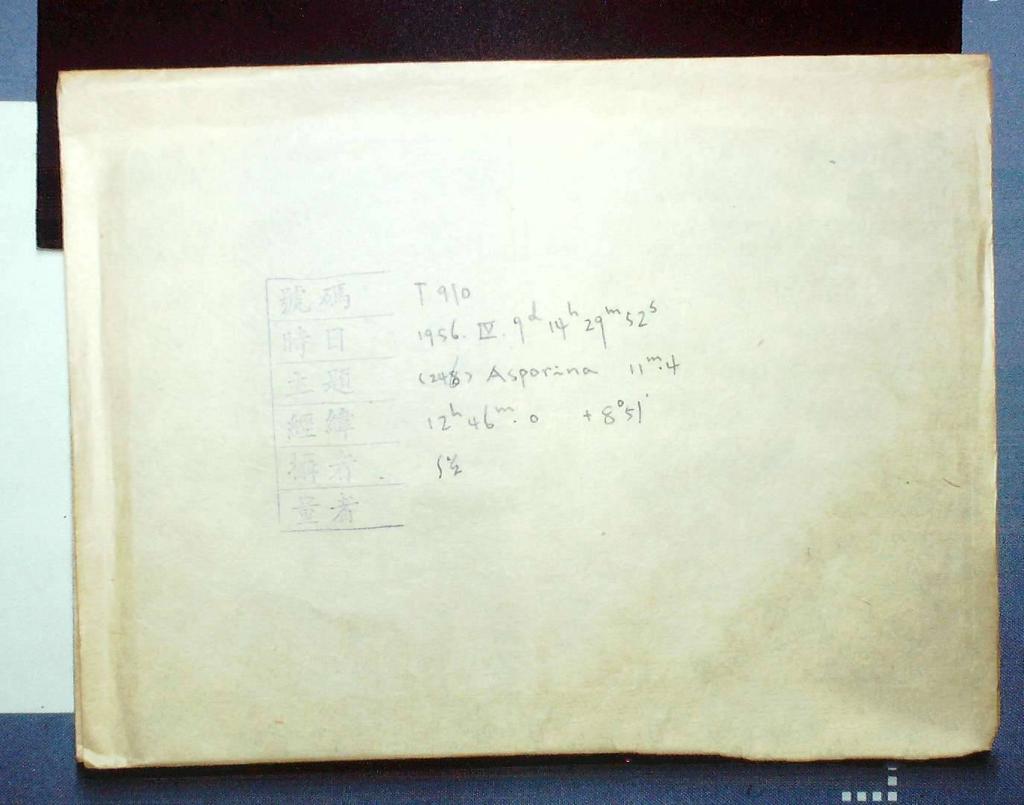 號碼 T 910
時日 1956. IV. 9d 14h 29m 52s
主題 (246) Asporina 11m.4
經緯 12h 46m.0 +8°51'
攝者
量者